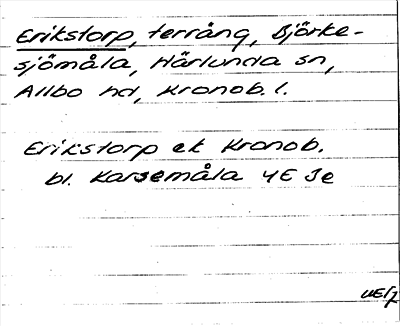 Erikstorp, terräng, Björke-
sjömåla, Härlunda sn,
Allbo hd, Kronob. l.
Erikstorp ek Kronob.
bl. Karsemåla 4E Se